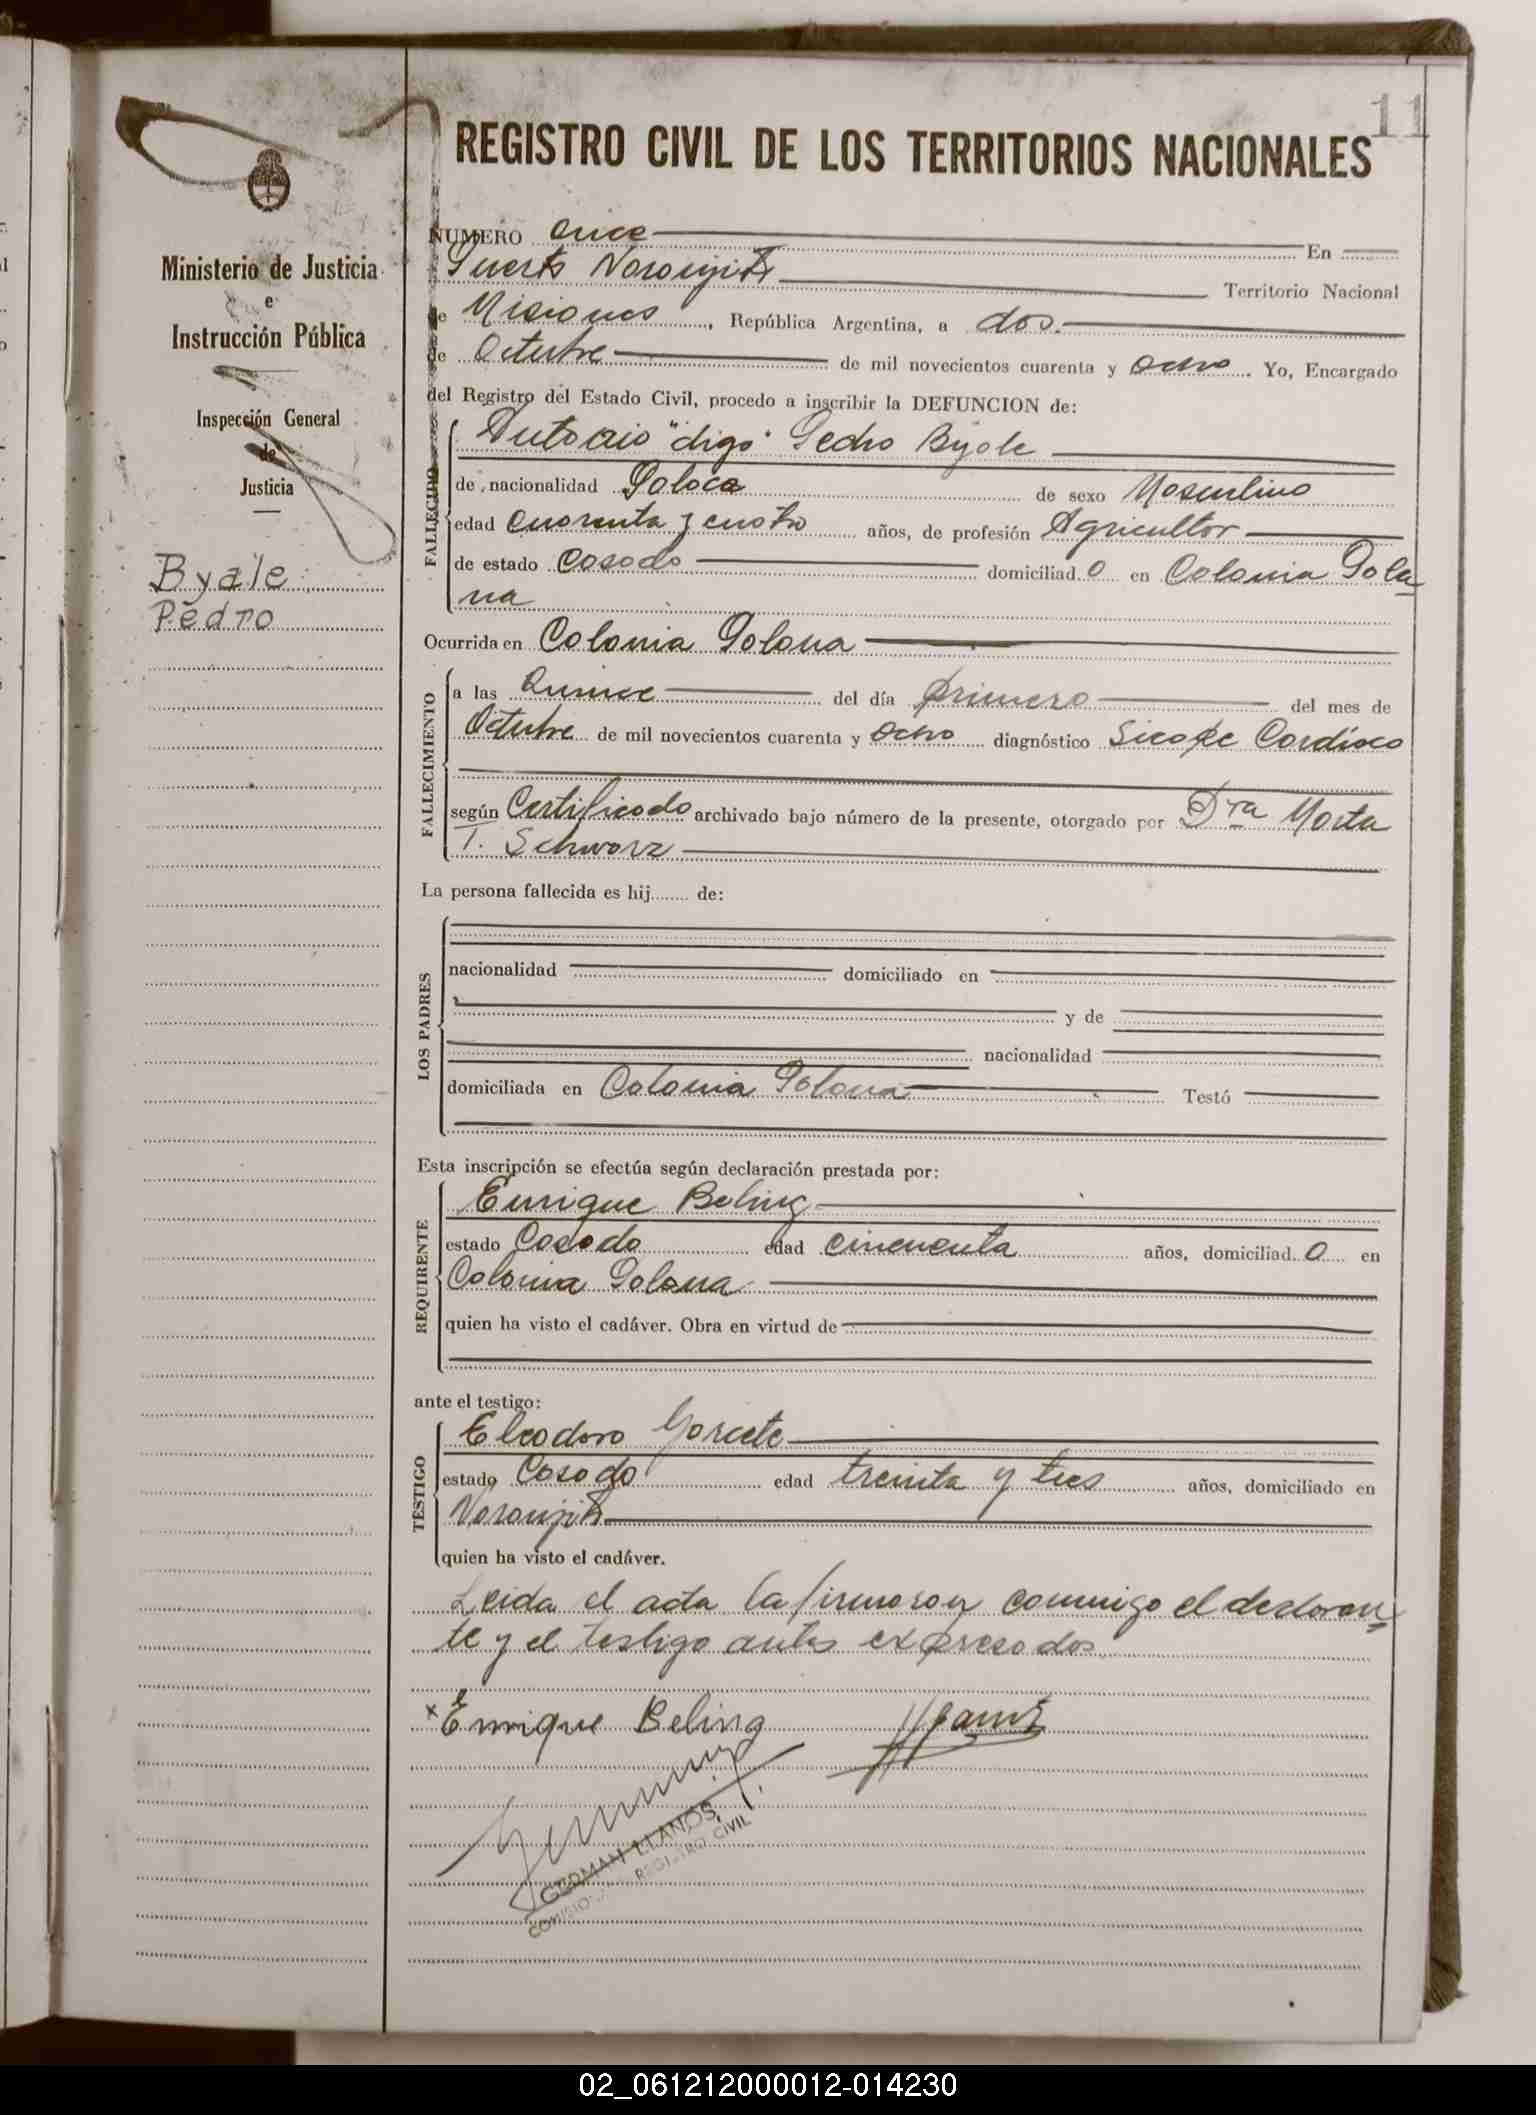 11
REGISTRO CIVIL DE LOS TERRITORIOS NACIONALES
Ministerio de Justicia
e
Instrucción Pública
Inspección General
de
Justicia
Byale
Pedro
NUMERO once En
Puerto Naranjito Territorio Nacional
de Misiones, República Argentina, a dos.
de Octubre de mil novecientos cuarenta y ocho. Yo, Encargado
del Registro del Estado Civil, procedo a inscribir la DEFUNCION de:
FALLECIDO
Antonio "digo" Pedro Byale
de nacionalidad Polaca de sexo Masculino
edad cuarenta y cuatro años, de profesión Agricultor
de estado Casado domiciliad o en Colonia Pola
na
Ocurrida en Colonia Polona
FALLECIMIENTO
a las Quince del día primero del mes de
Octubre de mil novecientos cuarenta y ocho diagnóstico Sicope Cardiaco
según Certificado archivado bajo número de la presente, otorgado por Dra Marta
T. Schwarz
La persona fallecida es hij........ de:
LOS PADRES
nacionalidad domiciliado en
y de
nacionalidad
domiciliada en Colonia Polona Testó
Esta inscripción se efectúa según declaración prestada por:
REQUIRENTE
Enrique Beling
estado Casado edad cincuenta años, domiciliad o en
Colonia Polona
quien ha visto el cadáver. Obra en virtud de
ante el testigo:
TESTIGO
Eleodoro Garcete
estado Casado edad treinta y tres años, domiciliado en
Naranjito
quien ha visto el cadáver.
Leida el acta la firmaron conmigo el declaran-
te y el testigo antes expresados
x Enrique Beling
GERMAN LLANOS
REGISTRO CIVIL
02_061212000012-014230